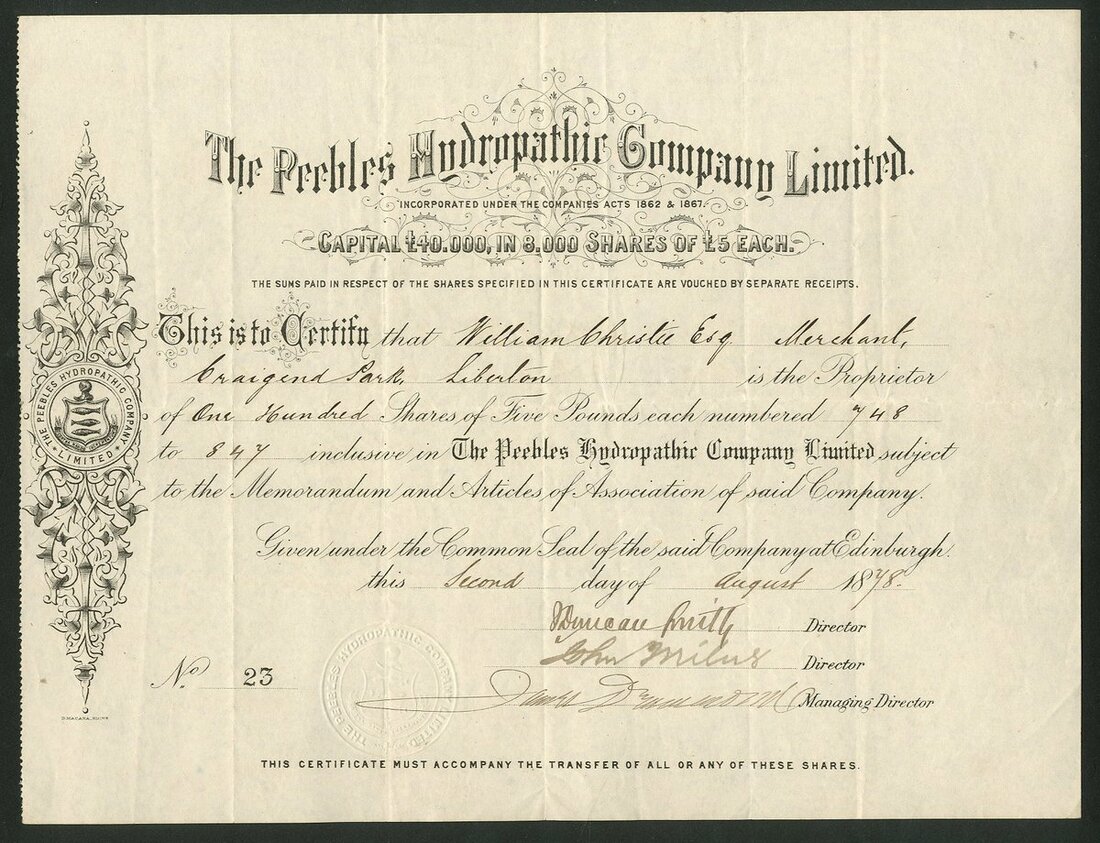 The Peebles Hydropathic Company Limited.
INCORPORATED UNDER THE COMPANIES ACTS 1862 & 1867.
CAPITAL £40.000, IN 8.000 SHARES OF £5 EACH.
THE SUMS PAID IN RESPECT OF THE SHARES SPECIFIED IN THIS CERTIFICATE ARE VOUCHED BY SEPARATE RECEIPTS.
This is to Certify that William Christie Esq Merchant,
Craigend Park, Liberton is the Proprietor
of One Hundred Shares of Five Pounds each numbered 748
to 847 inclusive in The Peebles Hydropathic Company Limited subject
to the Memorandum and Articles of Association of said Company.
Given under the Common Seal of the said Company at Edinburgh.
this Second day of August 1878.
Duncan Smith Director
John Milne Director
James Drummond Managing Director
No. 23
THIS CERTIFICATE MUST ACCOMPANY THE TRANSFER OF ALL OR ANY OF THESE SHARES.
THE PEEBLES HYDROPATHIC COMPANY LIMITED
THE PEEBLES HYDROPATHIC COMPANY LIMITED